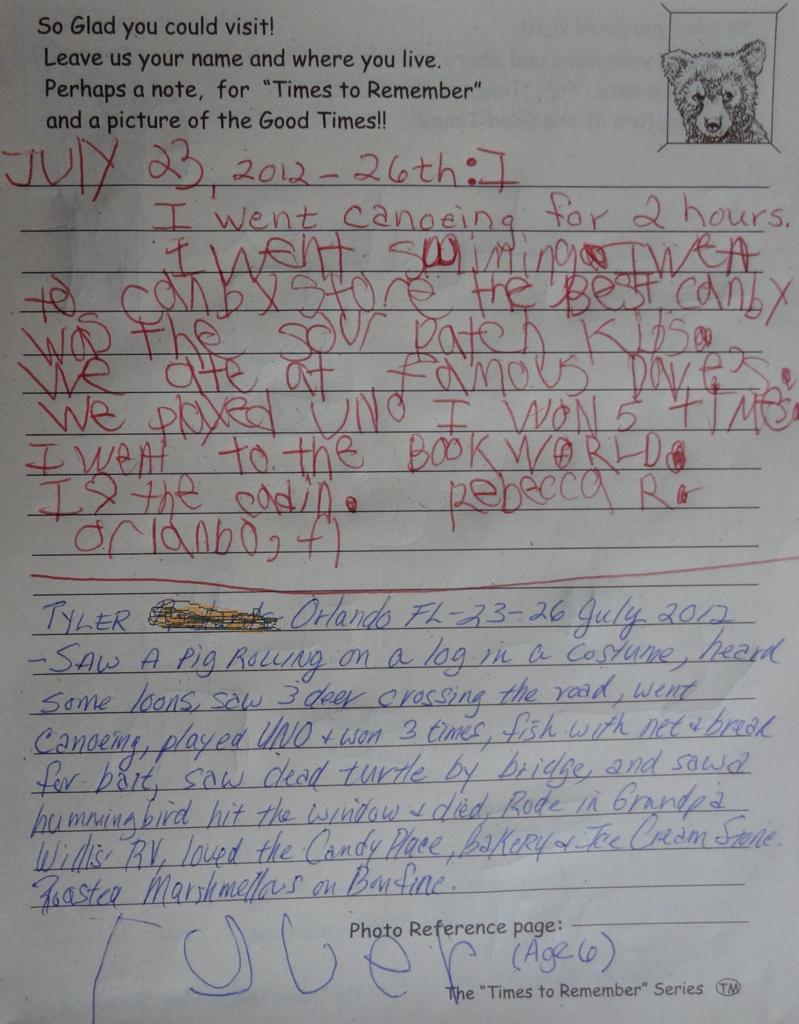 So Glad you could visit!
Leave us your name and where you live.
Perhaps a note, for "Times to Remember"
and a picture of the Good Times!!
JUly 23, 2012 - 26th: I
I went canoeing for 2 hours.
I went swiming. I went
to canby store the Best canby
was the sour patch kibs.
We ate at famous Dave's.
We played UNO I WON 5 TIMES.
I went to the BOOK WORLD.
I ♡ the cadin. Rebecca R.
orlanbo, fl
TYLER Orlando FL - 23-26 July 2012
- Saw A Pig Rolling on a log in a costume, heard
some loons, saw 3 deer crossing the road, went
canoeing, played UNO + won 3 times, fish with net & bread
for bait, saw dead turtle by bridge, and saw a
hummingbird hit the window & died, Rode in Grandpa
Willis' RV, loved the Candy Place, bakery & Ice Cream Store.
Roasted Marshmellows on Bonfire.
Photo Reference page:
Tyler (Age 6)
The "Times to Remember" Series TM